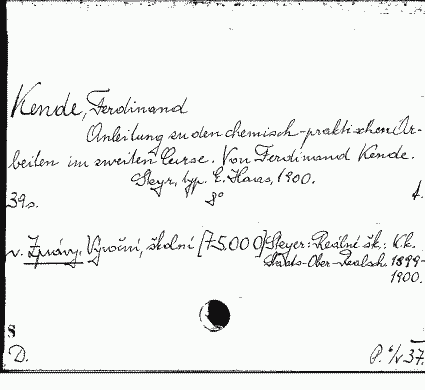 Kende, Ferdinand
Anleitung zu den chemisch-praktischen Ar-
beiten im zweiten Curse. Von Ferdinand Kende.
Steyr, typ. E. Haas, 1900.
39s. 8° 4.
v. Zprávy. Výroční, školní [75.000] Steyer: Reálné šk.: K.k.
Staats-Ober-Realsch. 1899-
1900.
S
D. P. 6/V 37.